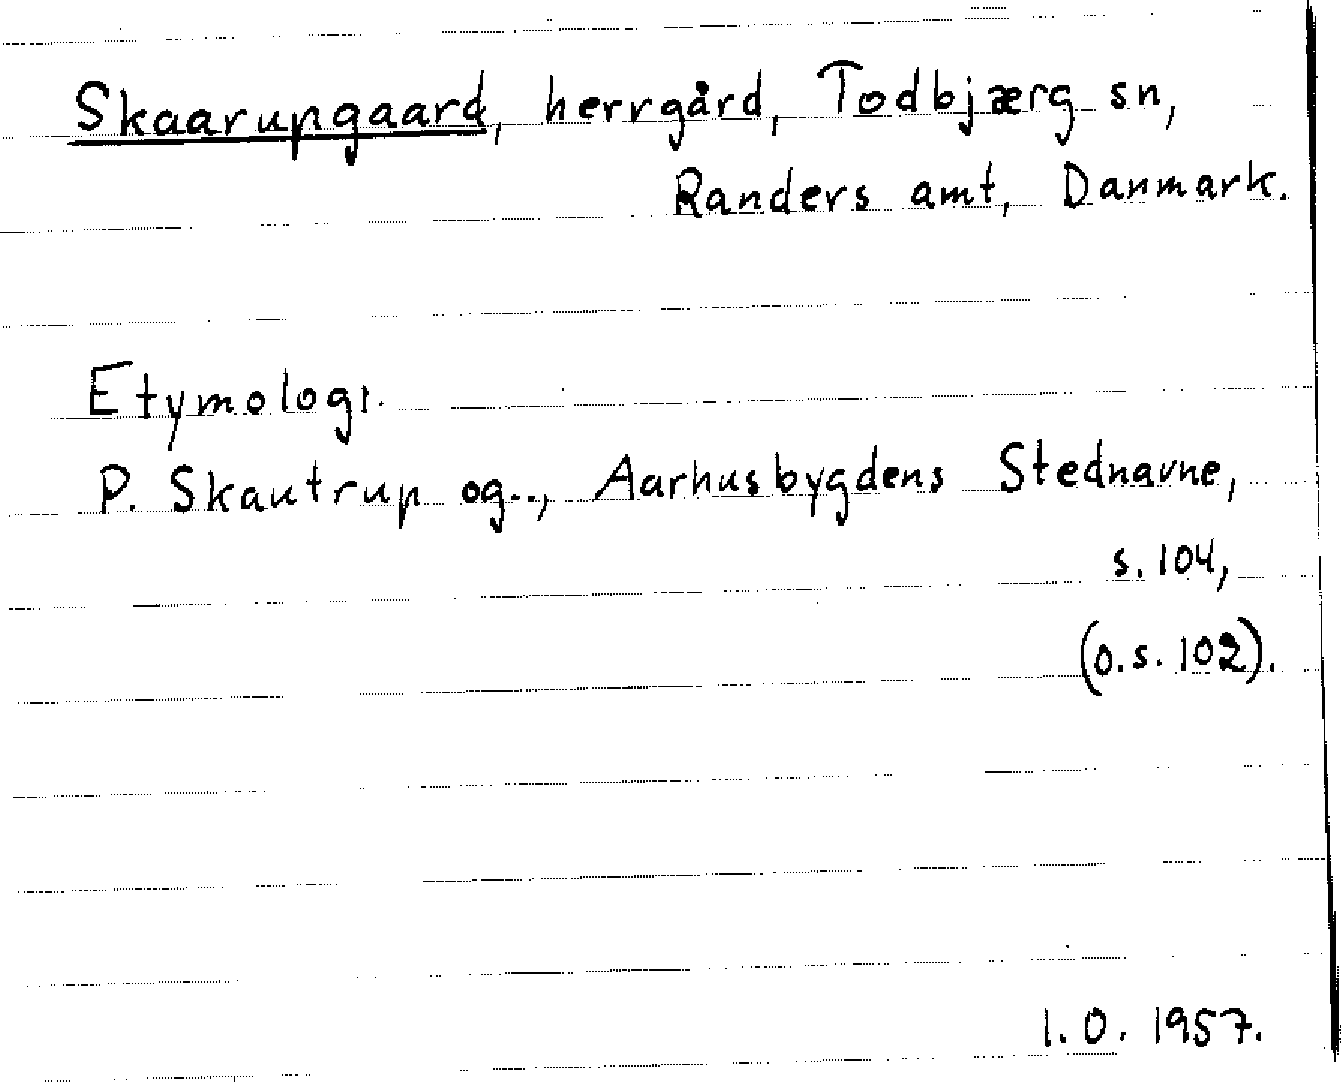 Skaarupgaard, herrgård, Todbjærg sn,
Randers amt, Danmark.
Etymologi.
P. Skautrup og.., Aarhusbygdens Stednavne,
s. 104,
(o.s. 102).
I. O. 1957.